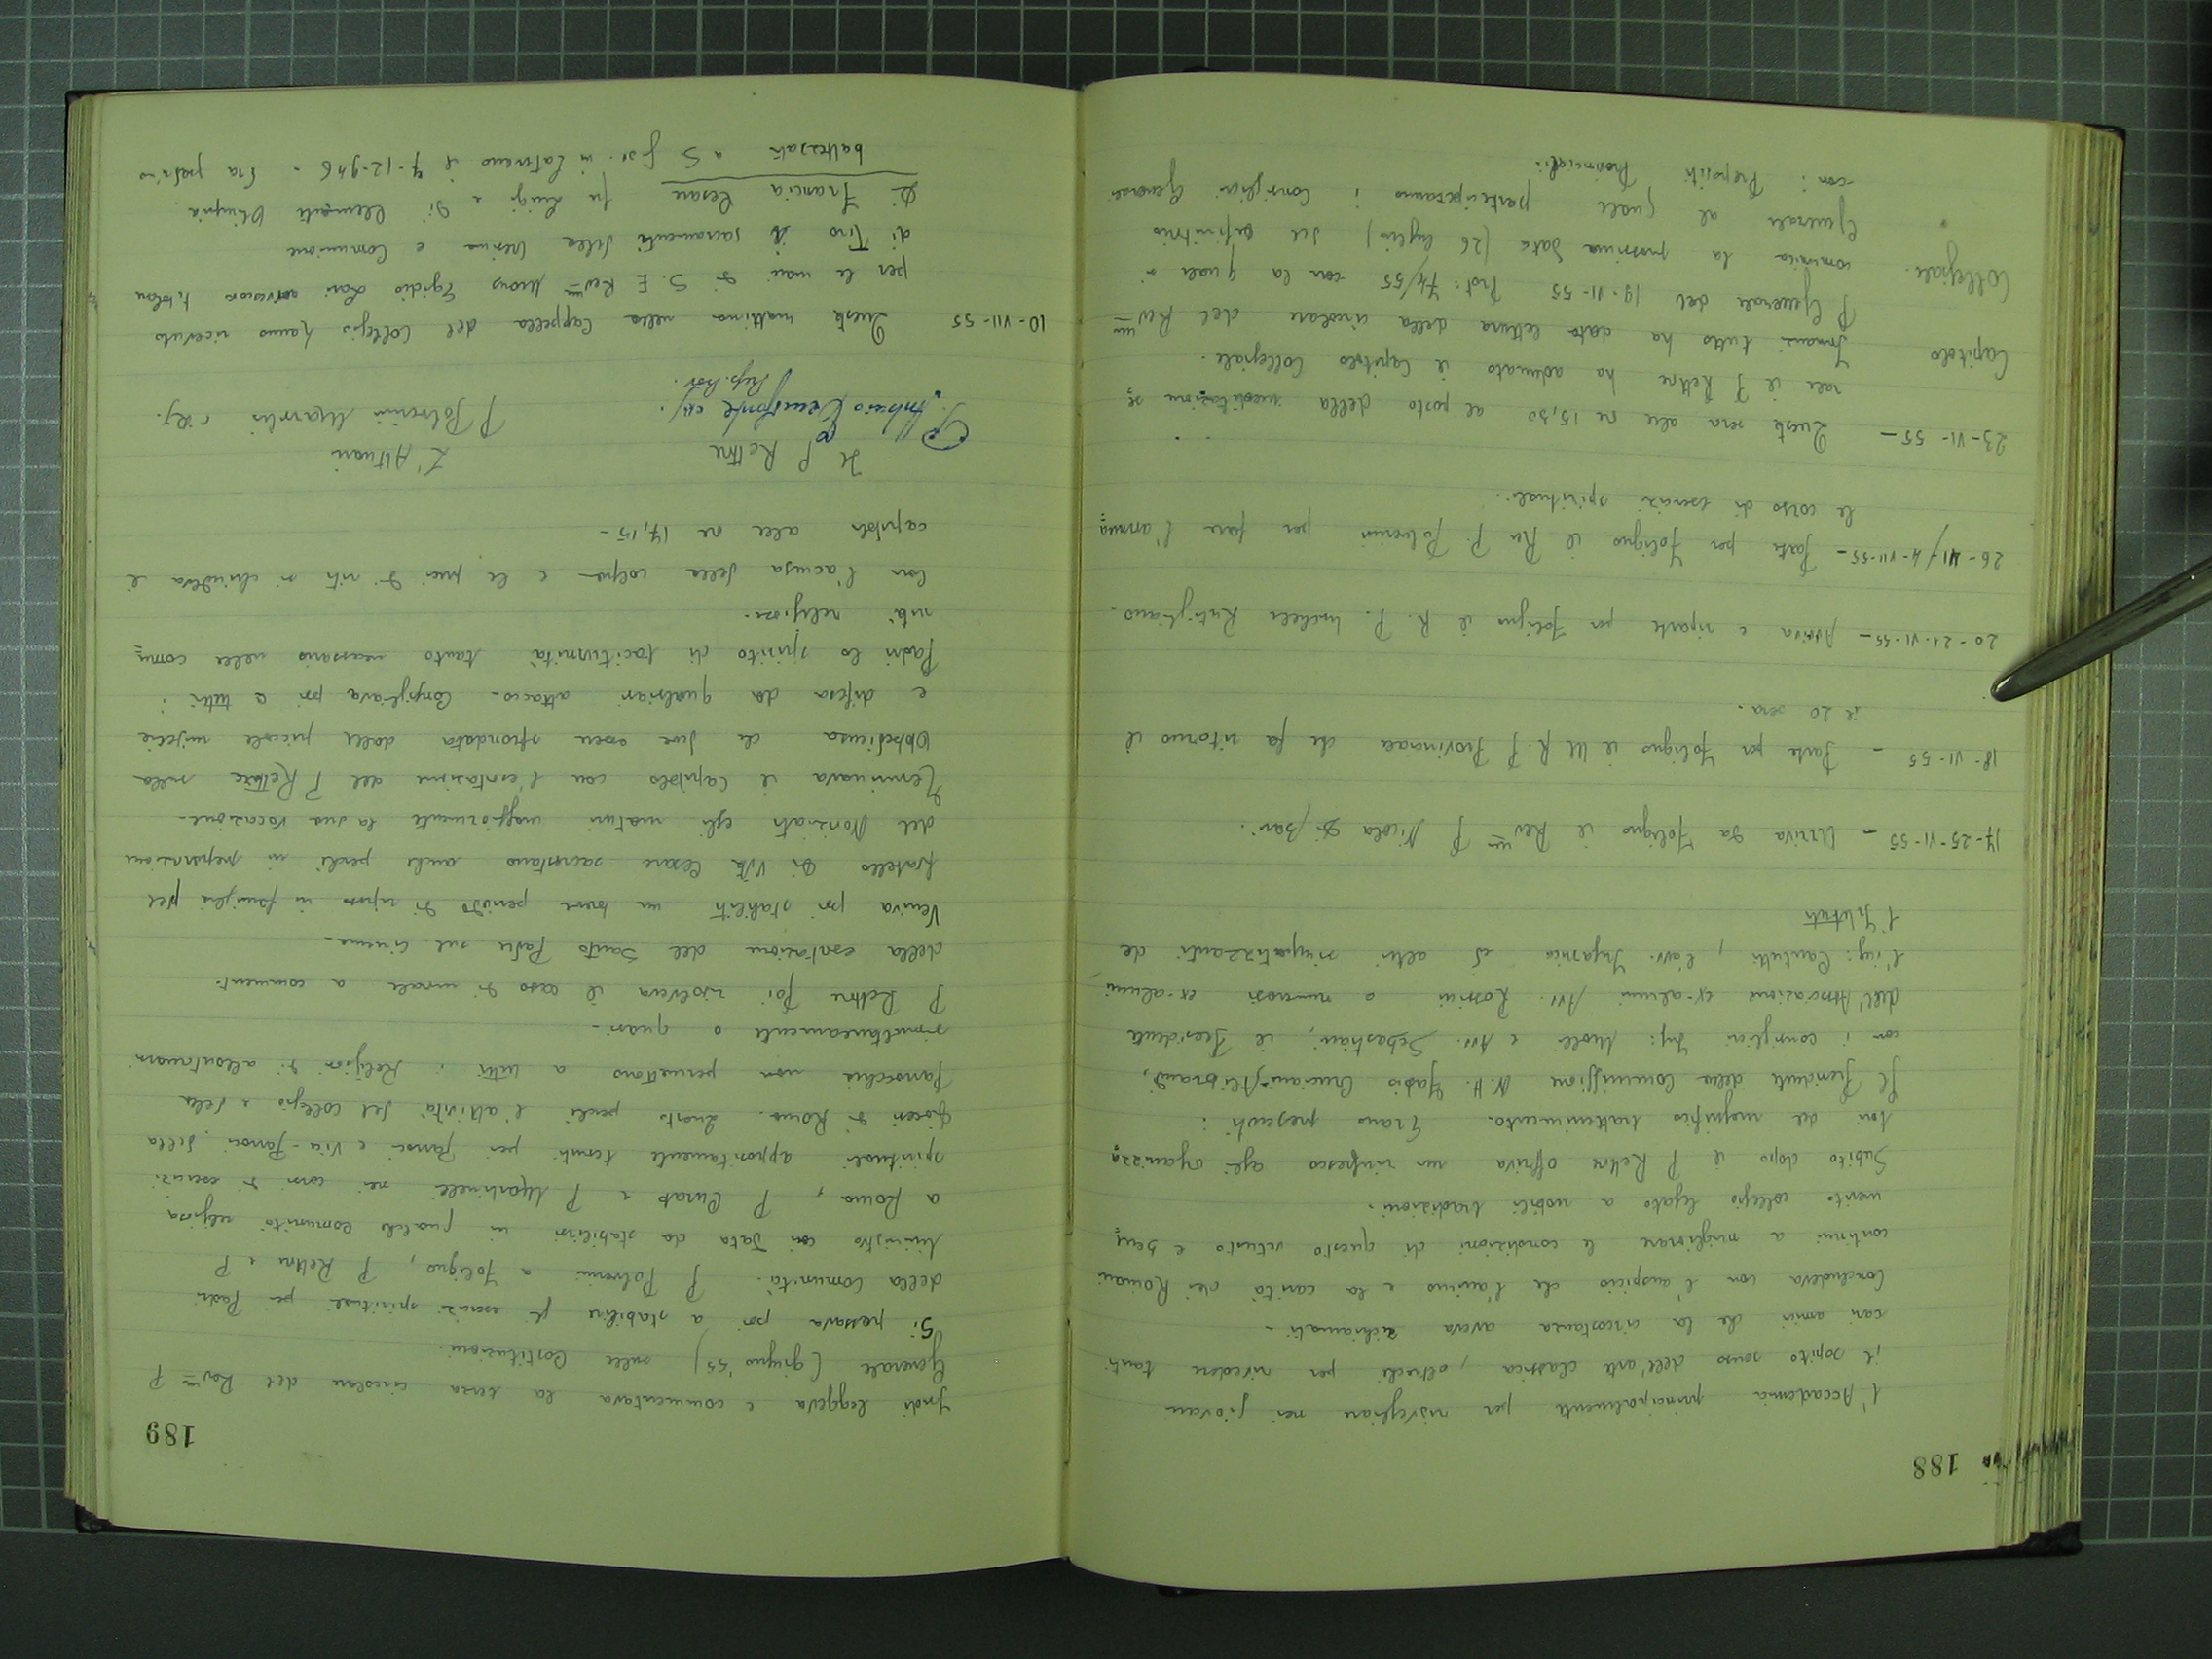 188
l'Accademia principalmente per risvegliare nei giovani
il sopito senso dell'arte classica, oltreché per rivedere tanti
cari amici che la circostanza aveva richiamati -
Concludeva con l'auspicio che l'animo e la carità dei Romani
continui a migliorare le condizioni di questo vetusto e bene=
merito collegio legato a nobili tradizioni.
Subito dopo il P Rettore offriva un rinfresco agli organizza=
tori del magnifico trattenimento. Erano presenti:
Il Presidente della Commissione N. H. Fabio Cruciani Alibrandi,
con i consiglieri Ing: Molli e Avv. Sebastiani, il Presidente
dell'Associazione ex-alunni Avv. Rossini e numerosi ex-alunni,
l'ing: Cantutti, l'avv. Ingarrica ed altri simpatizzanti de
l'Istituto
17-25-VI-55 - Arriva da Foligno il Rev.mo P Nicola di Bari.
18-VI-55 - Parte per Foligno il M. R. P Provinciale che fa ritorno il
il 20 sera.
20-21-VI-55 - Arriva e riparte per Foligno il R. P. Michele Rutigliano.
26-VI/4-VII-55 - Parte per Foligno il Rev P. Polverini per fare l'annua=
le corso di esercizi spirituali.
23-VI-55 - Questa sera alle ore 15,30 al posto della meditazione se=
rale il P Rettore ha adunato il Capitolo Collegiale.
Capitolo Innanzi tutto ha dato lettura della circolare del Rev.mo
Collegiale. P Generale del 19-VI-55 Prot: 74/55 con la quale si
comunica la prossima data (26 luglio) del definitorio
Generale al quale parteciperanno i Consiglieri Generali
con i Prepositi Provinciali.
189
Indi leggeva e commentava la terza circolare del Rev.mo P
Generale (giugno '55) sulle Costituzioni.
Si passava poi a stabilire gli esercizi spirituali pei Padri
della Comunità. P Polverini a Foligno, P Rettore e P
Ministro in data da stabilirsi in qualche comunità religiosa
a Roma, P Curato e P Martinelli nei corsi di esercizi
spirituali appositamente tenuti per Parroci e Vice-Parroci della
diocesi di Roma. Questo perché l'attività del collegio e della
Parrocchia non permettono a tutti i Religiosi di allontanarsi
simultaneamente o quasi -
P Rettore poi risolveva il caso di morale a commento
della esortazione del Santo Padre sul cinema -
Veniva poi stabilito un breve periodo di riposo in famiglia pel
fratello Di Vita Cesare sacrestano anche perché in preparazione
del Noviziato egli maturi maggiormente la sua vocazione -
Terminava il Capitolo con l'esortazione del P Rettore sulla
Obbedienza che deve essere sfrondata dalle piccole miserie
e difesa da qualsiasi attacco - Consigliava poi a tutti i
Padri lo spirito di taciturnità tanto necessario nelle comu=
nità religiose.
Con l'accusa della colpa e le preci di rito si chiudeva il
capitolo alle ore 17,15 -
Il P Rettore L'Attuario
P Polverini Maurilio crs.
Prep. Prov.
10-VII-55 Questa mattina nella Cappella del Collegio hanno ricevuto
per le mani di S. E Rev.ma Mons Egidio Lari arcivescovo titolare
di Tiro i sacramenti della Cresima e Comunione
Di Francia Cesare fu Luigi e di Clementi Olimpia
battezzato a S. Giov. in Laterano il 7-12-946. Era padrino